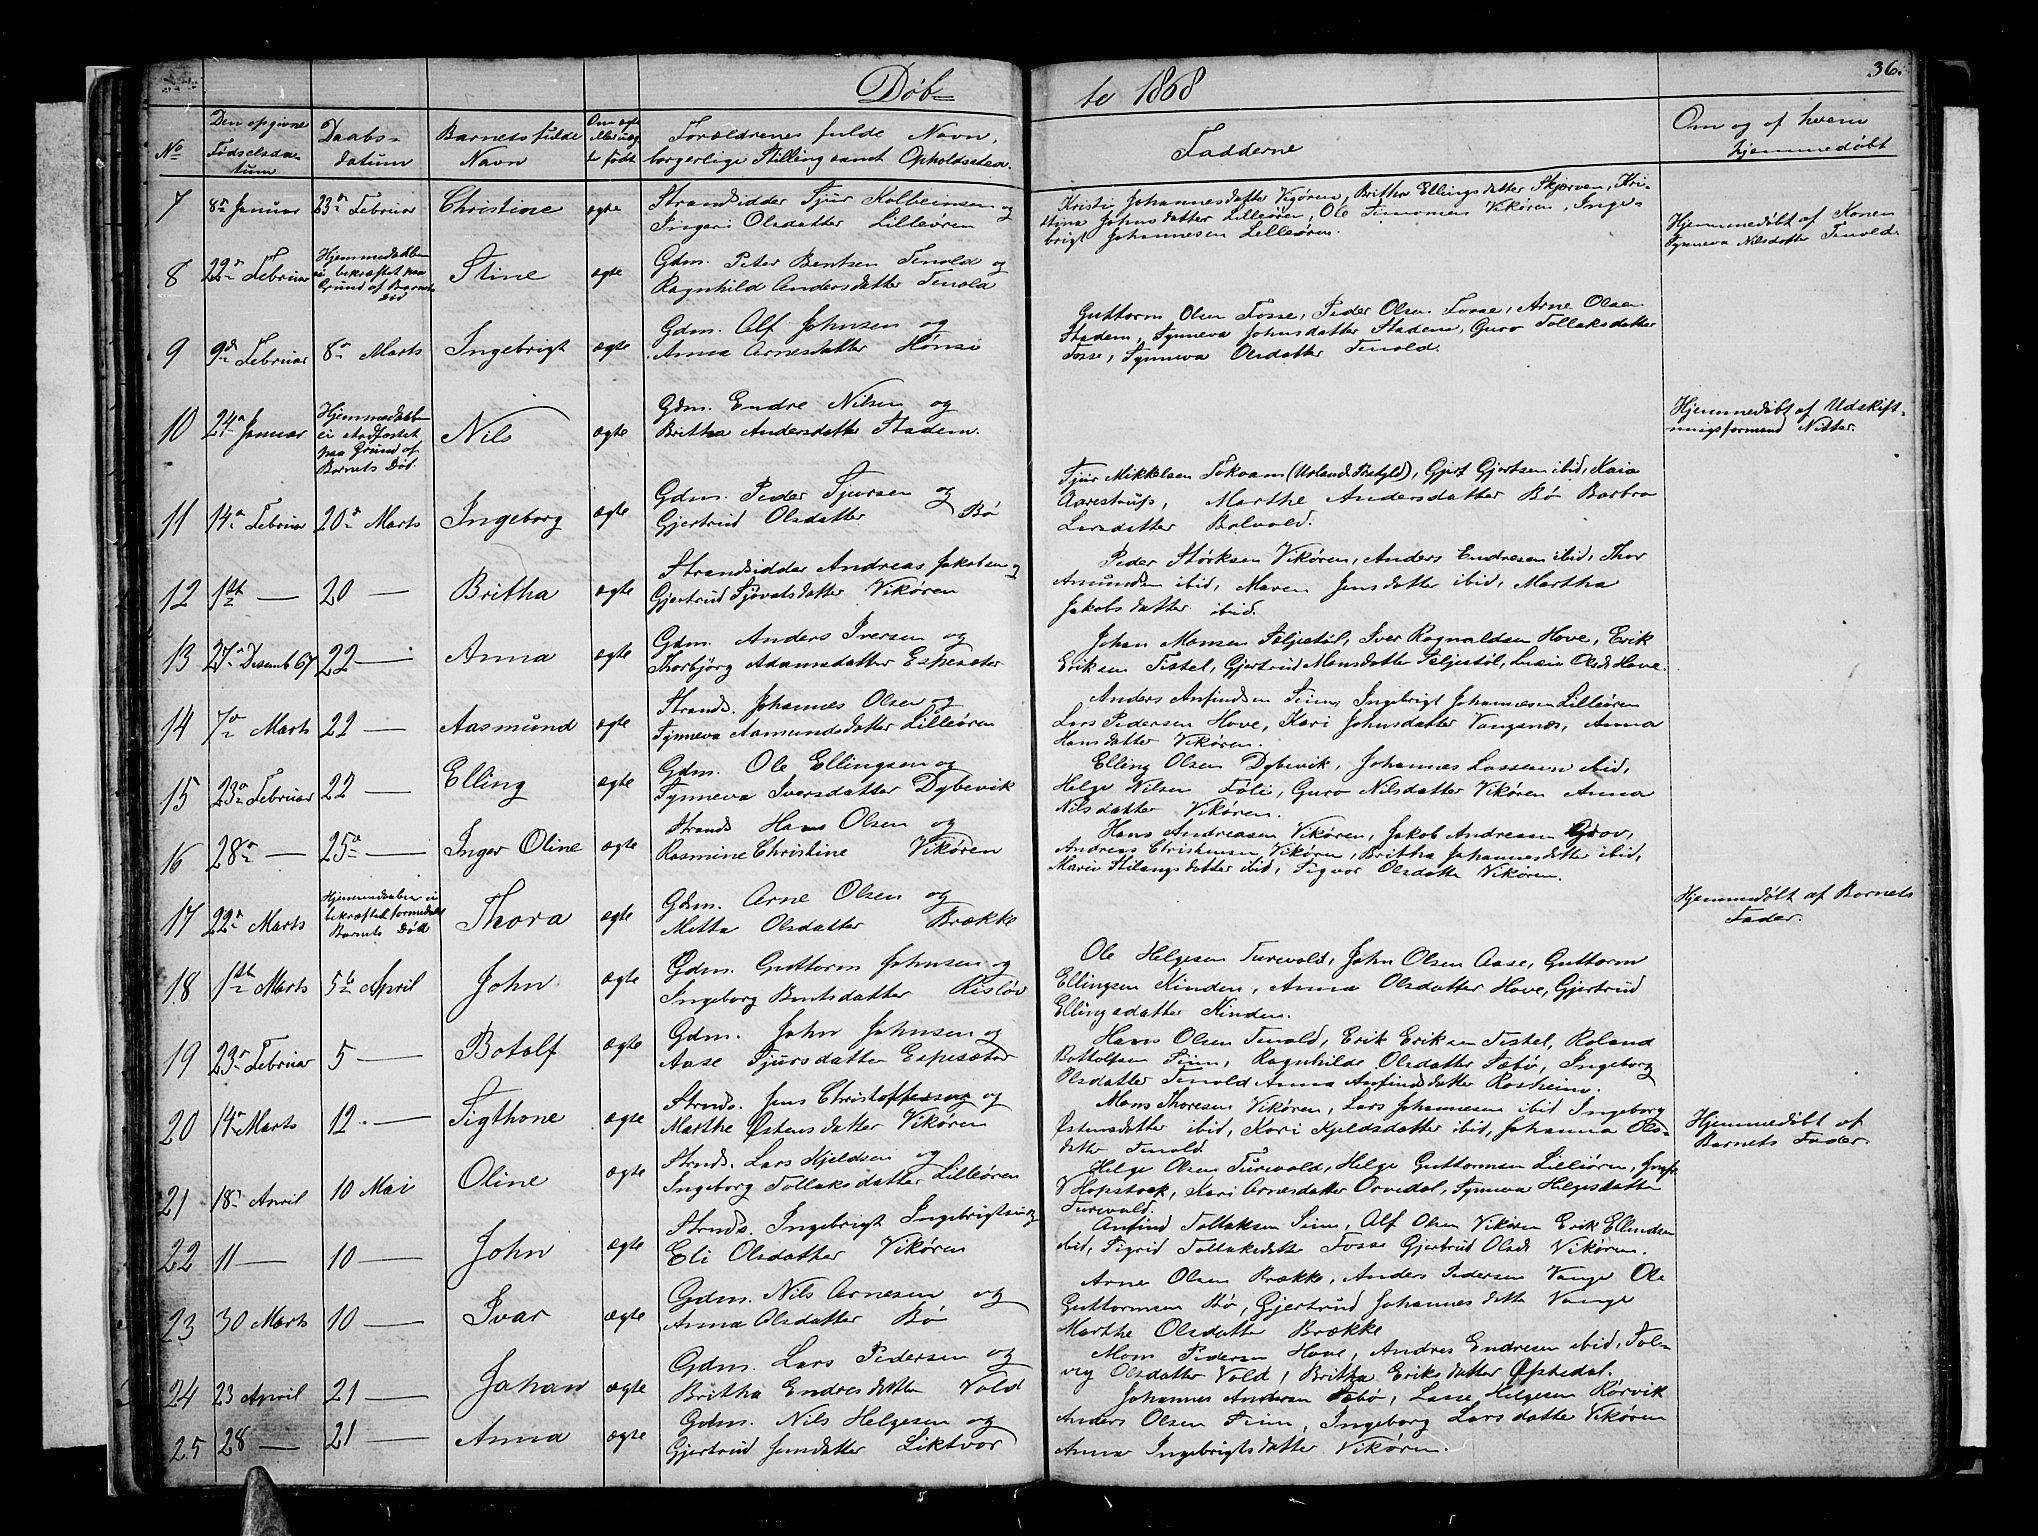 Døb-
te 1868
36.
No
Den opgivne Fødselsda-
tum
Daabs-
datum
Barnets fulde
Navn
Om ægte
eller uæg-
te født
Forældrenes fulde Navn,
borgerlige Stilling samt Opholdssted.
Fadderne
Om og af hvem
hjemmedøbt
7
8de Januar
23de Februar
Christine
ægte
Strandsidder Sjur Kolbeinsen og
Ingeri Olsdatter Lilleören
Kristi Johannesdatter Vigören, Britha Ellingsdatter Skjerven, Kri-
stina Johnsdatter Lilleören, Ole Simonsen Vikören, Inge-
brigt Johannesen Lilleören.
8
22de Februar
Hjemmedaaben
ei bekræftet paa
Grund af Barnets
Død
Stine
ægte
Gdm. Peter Bentsen Tenold og
Ragnhild Andersdatter Tenold
Hjemmedøbt af Konen
Synneva Nilsdatter Tenold.
9
9de Februar
8de Marts
Ingebrigt
ægte
Gdm. Alf Johnsen og
Anna Arnesdatter Hønsi
Guttorm Olsen Fosse, Peder Olsen Fosse, Arne Olsen
Stadem, Synneva Johnsdatter Stadem, Guro Tollaksdatter
Fosse, Synneva Olsdatter Tenold.
10
24de Januar
Hjemmedaaben
ei stadfæstet
paa Grund af
Barnets Død.
Nils
ægte
Gdm. Endre Nilsen og
Britha Andersdatter Stadem.
Hjemmedøbt af Udskift-
ningsformand Nitter.
11
14de Februar
20de Marts
Ingeborg
ægte
Gdm. Peder Sjursen og
Gjertrud Olsdatter Bö
Sjur Mikkelsen Fokvam (Urlands Prstgld), Gjert Gjertsen ibid, Kaia
Aarestrup, Marthe Andersdatter Bö Barbra
Larsdatter Bolvold.
12
1ste —
20 —
Britha
ægte
Strandsidder Andreas Jakobsen og
Gjertrud Sjovatsdatter Vikören
Peder Störksen Vikören, Anders Endresen ibid, Thor
Amundsen ibid, Maren Jensdatter ibid, Martha
Jakobsdatter ibid.
13
27de Desemb 67
22 —
Anna
ægte
Gdm. Anders Iversen og
Thorbjörg Adamsdatter Espesæter
Johan Monsen Seljestöl, Iver Ragnaldsen Hove, Erik
Eriksen Tistel, Gjertrud Monsdatter Seljestöl, Lucie Olsd. Hove.
14
7de Marts
22 —
Aasmund
ægte
Strands. Johannes Olsen og
Synneva Aamundsdatter Lilleören
Anders Anfindsen Sinn, Ingebrigt Johannesen Lilleören
Lars Pedersen Hove, Kari Johnsdatter Vangsnæs, Anna
Hansdatter Vikören.
15
23de Februar
22 —
Elling
ægte
Gdm. Ole Ellingsen og
Synneva Iversdatter Dybevik
Elling Olsen Dybevik, Johannes Lassesen ibid,
Helge Nilsen Föli, Guro Nilsdatter Vikören Anna
Nilsdatter Vikören.
16
28de —
25de —
Inger Oline
ægte
Strands Hans Olsen og
Rasmine Christine Vikören
Hans Andreasen Vikören, Jakob Andreasen Grov,
Andreas Christensen Vikören, Britha Johannesdatter ibid,
Marie Stilangsdatter ibid, Sigvor Olsdatte Vikören.
17
22de Marts
Hjemmedaaben ei
bekræftet formedelst
Barnets Död
Thora
ægte
Gdm. Arne Olsen og
Metta Olsdatter Brække
Hjemmedøbt af Barnets
Fader.
18
1ste Marts
5te April
John
ægte
Gdm. Guttorm Johnsen og
Ingeborg Bentsdatter Risløv
Ole Helgesen Turevold, John Olsen Aase, Guttorm
Ellingsen Kinden, Anna Olsdatter Hove, Gjertrud
Ellingsdatter Kinden.
19
23de Februar
5 —
Botolf
ægte
Gdm. John Johnsen og
Aase Sjursdatter Espesæter
Hans Olsen Tenold, Erik Eriksen Tistel, Roland
Bottolfsen Sinn, Ragnhilde Olsdatter Sæbö, Ingeborg
Olsdatter Tenold Anna Anfindsdatter Rosheim.
20
14de Marts
12. —
Sigthone
ægte
Strnds. Jens Christoffersen og
Marthe Østensdatter Vikören
Mons Thoresen Vikören, Lars Johannesen ibid Ingeborg
Østensdatter ibid, Kari Kjeldsdatter ibid, Johanna Ols-
datter Tenold.
Hjemmedøbt af
Barnets Fader.
21
18de April
10 Mai
Oline
ægte
Strnds. Lars Kjeldsen og
Ingeborg Tollaksdatter Lilleören
Helge Olsen Turevold, Helge Guttormsen Lilleören, Jomfr.
Hopstock, Kari Arnesdatter Orvedal, Synneva Helgesdatter
Turevold.
22
11 —
10 —
John
ægte
Strnds. Ingebrigt Ingebrigtsen og
Eli Olsdatter Vikören
Anfind Tollaksen Sinn, Alf Olsen Vikören Erik Ellendsen
ibid, Sigrid Tollaksdatter Fosse Gjertrud Olsd. Vikören.
23
30 Marts
10 —
Ivar
ægte
Gdm. Nils Arnesen og
Anna Olsdatter Bö
Arne Olsen Brække, Anders Pedersen Vange Ole
Guttormsen Bö, Gjertrud Johannesdatte Vange
Marthe Olsdatter Brække
24
23 April
21 —
Johan
ægte
Gdm. Lars Pedersen og
Britha Endresdatter Vold
Mons Pedersen Hove, Andres Endresen ibid, Sol-
vig Olsdatter Vold, Britha Eriksdatter Ofstedal.
25
28 —
21 —
Anna
ægte
Gdm. Nils Helgesen og
Gjertrud Jensdatter Liktvor
Johannes Andersen Sæbö, Lasse Helgesen Rörvik
Anders Olsen Sinn, Ingeborg Larsdatter Vikören
Anna Ingebrigtsdatter Vikören.